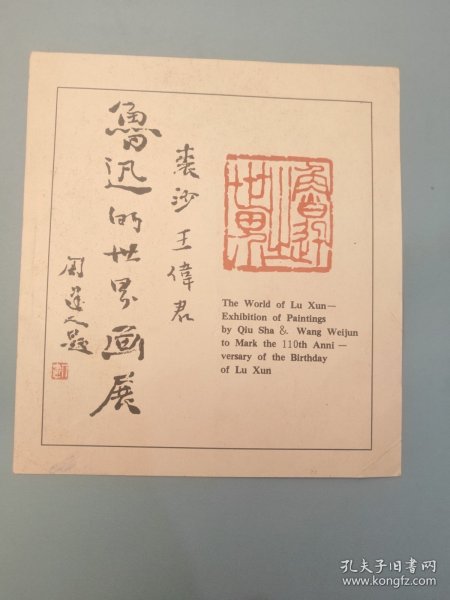 裘沙 王偉君
魯迅的世界画展
周建人題
魯迅之世界
The World of Lu Xun—
Exhibition of Paintings
by Qiu Sha & Wang Weijun
to Mark the 110th Anni—
versary of the Birthday
of Lu Xun
孔夫子旧书网
www.kongfz.com